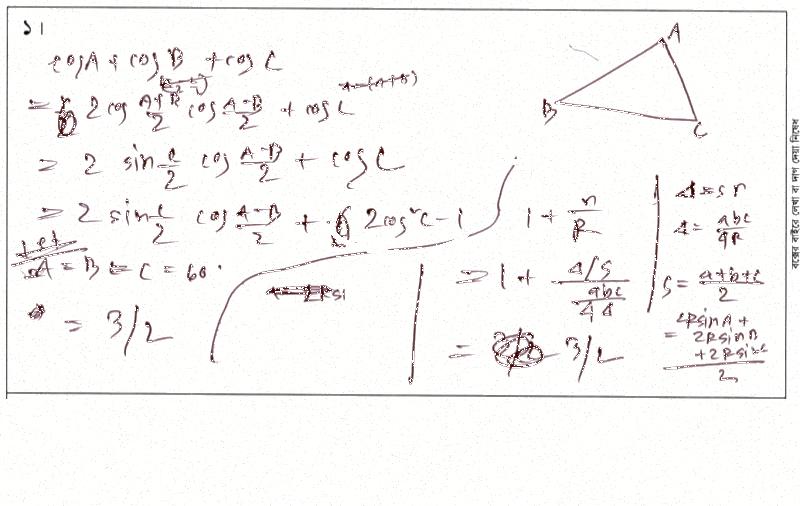 ১।
cosA + cosB + cosC
= 2 cos A+B/2 cos A-B/2 + cosC
= 2 sin C/2 cos A-B/2 + cosC
= 2 sin C/2 cos A-B/2 + 2cos²C - 1
Let
A = B = C = 60°
= 3/2
A
B
C
1 + r/R
= 1 + Δ/S / abc/4Δ
= 3/2
Δ = sr
Δ = abc/4R
S = a+b+c/2
= 2RsinA + 2RsinB + 2Rsinc / 2
বক্সের বাইরে লেখা বা দাগ দেয়া নিষেধ